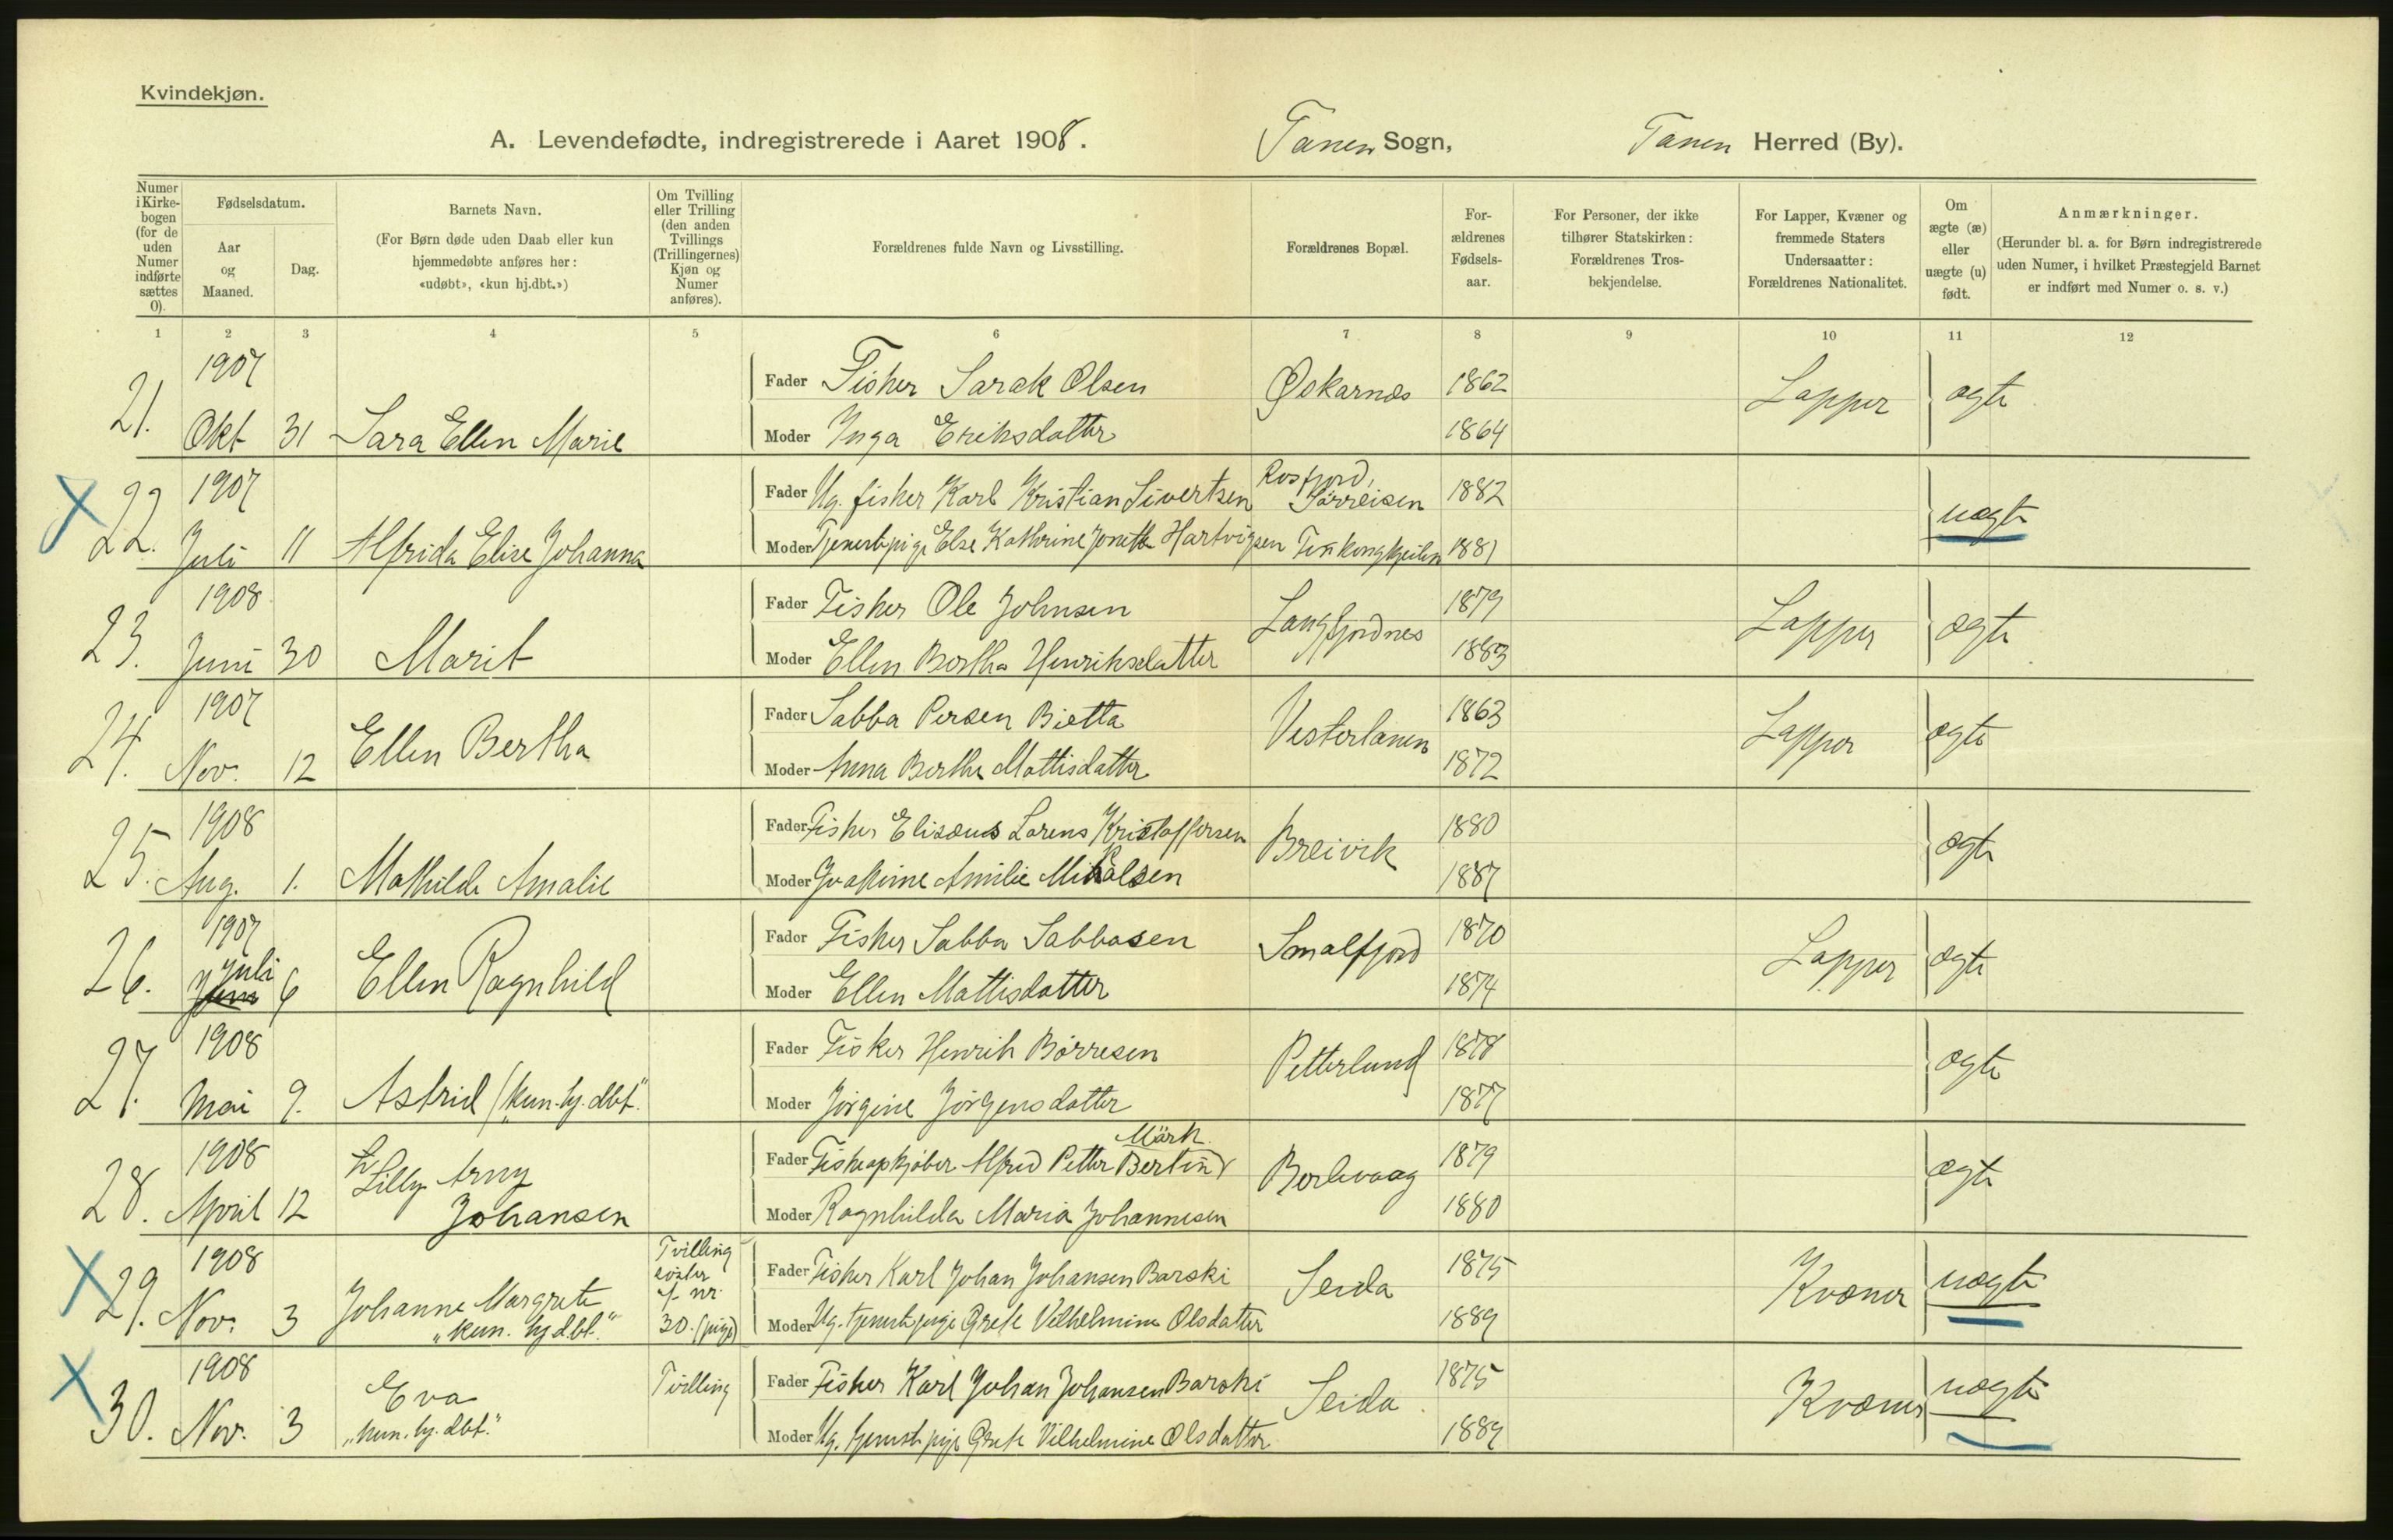 Kvindekjøn.
A. Levendefødte, indregistrerede i Aaret 1908. Tanen Sogn, Tanen Herred (By).
Numer i Kirkebogen (for de uden Numer indførte sættes 0).
Fødselsdatum.
Aar og Maaned.
Dag.
Barnets Navn.
(For Børn døde uden Daab eller kun hjemmedøbte anføres her: «udøbt», «kun hj.dbt.»)
Om Tvilling eller Trilling (den anden Tvillings (Trillingernes) Kjøn og Numer anføres).
Forældrenes fulde Navn og Livsstilling.
Forældrenes Bopæl.
Forældrenes Fødselsaar.
For Personer, der ikke tilhører Statskirken: Forældrenes Trosbekjendelse.
For Lapper, Kvæner og fremmede Staters Undersaatter: Forældrenes Nationalitet.
Om ægte (æ) eller uægte (u) født.
Anmærkninger.
(Herunder bl. a. for Børn indregistrerede uden Numer, i hvilket Præstegjeld Barnet er indført med Numer o. s. v.)
1 2 3 4 5 6 7 8 9 10 11 12
21. 1907 Okt 31 Sara Ellen Marie
Fader Fisker Sarak Olsen Øskarnæs 1862 Lapper ægte
Moder Inga Eriksdatter 1864
22. 1907 Juli 11 Alfrida Elise Johanna
Fader Ug. fisker Karl Kristian Sivertsen Rosfjord, Sørreisen 1882 uægte
Moder Tjenestepige Else Kathrine Hartvigsen 1881
23. 1908 Juni 30 Marit
Fader Fisker Ole Johnsen Langfjordnes 1879 Lapper ægte
Moder Ellen Bertha Henriksdatter 1883
24. 1907 Nov. 12 Ellen Bertha
Fader Sabba Persen Bietta Vestertanen 1863 Lapper ægte
Moder Anna Berthe Mattisdatter 1872
25. 1908 Aug. 1. Mathilde Amalie
Fader Fisker Elisæus Lorens Kristoffersen Breivik 1880 ægte
Moder Joakime Amilie Mikalsen 1887
26. 1907 Juli 6 Ellen Ragnhild
Fader Fisker Sabba Sabbasen Smalfjord 1870 Lapper ægte
Moder Ellen Mattisdatter 1874
27. 1908 Mai 9. Astrid "kun. hj. dbt."
Fader Fisker Henrik Börresen Petterlund 1878 ægte
Moder Jörgine Jörgensdatter 1877
28. 1908 April 12 Lilly Arny Johansen
Fader Fiskeopkjöber Alfred Petter Bertin Märk. Berlevaag 1879 ægte
Moder Ragnhilda Maria Johannesen 1880
29. 1908 Nov. 3 Johanne Margrete "kun. hj dbt." Tvilling söster f. nr. 30. (pige)
Fader Fisker Karl Johan Johansen Barski Seida 1875 Kvæner uægte
Moder Ug. tjenestepige Grete Vilhelmine Olsdatter 1889
30. 1908 Nov. 3 Eva "kun. hj. dbt." Tvilling
Fader Fisker Karl Johan Johansen Barski Seida 1875 Kvæner uægte
Moder Ug. tjenestepige Grete Vilhelmine Olsdatter 1889